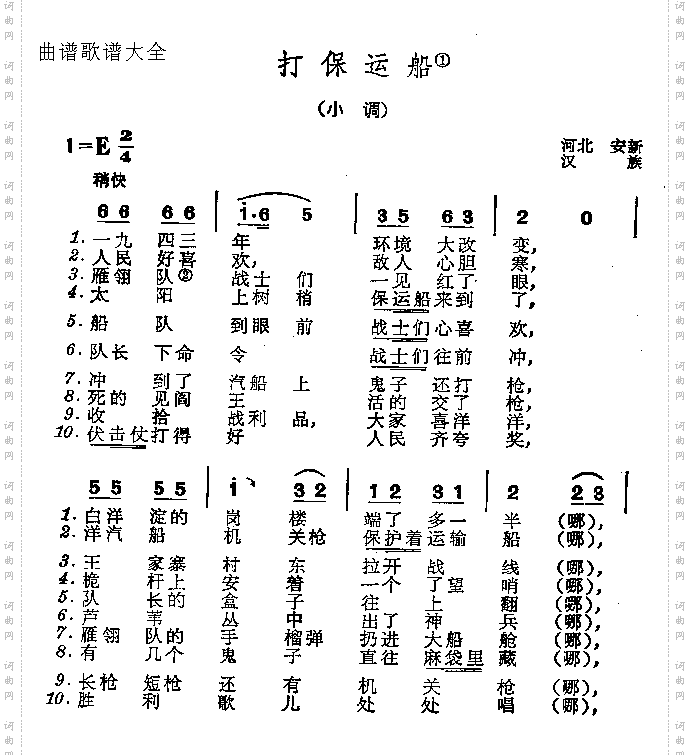 曲谱歌谱大全
打保运船①
（小 调）
1=E 2/4
河北 安新
汉 族
稍快
6 6 6 6 | i·6 5 | 3 5 6 3 | 2 0 |
1. 一九 四三 年 环境 大改 变,
2. 人民 好喜 欢, 敌人 心胆 寒,
3. 雁翎 队② 战士 们 一见 红了 眼,
4. 太 阳 上树 梢 保运船来到 了,
5. 船 队 到眼 前 战士们心喜 欢,
6. 队长 下命 令 战士们往前 冲,
7. 冲 到了 汽船 上 鬼子 还打 枪,
8. 死的 见阎 王 活的 交了 枪,
9. 收 拾 战利 品, 大家 喜洋 洋,
10. 伏击仗打得 好 人民 齐夸 奖,
5 5 5 5 | i 3 2 | 1 2 3 1 | 2 2 3 |
1. 白洋 淀的 岗 楼 端了 多一 半 (哪),
2. 洋汽 船 机 关枪 保护着运输 船 (哪),
3. 王 家寨 村 东 拉开 战 线 (哪),
4. 桅 杆上 安 着 一个 了望 哨 (哪),
5. 队 长的 盒 子 往 上 翻 (哪),
6. 芦 苇 丛 中 出了 神 兵 (哪),
7. 雁翎 队的 手 榴弹 扔进 大船 舱 (哪),
8. 有 几个 鬼 子 直往 麻袋里 藏 (哪),
9. 长枪 短枪 还 有 机 关 枪 (哪),
10. 胜 利 歌 儿 处 处 唱 (哪),